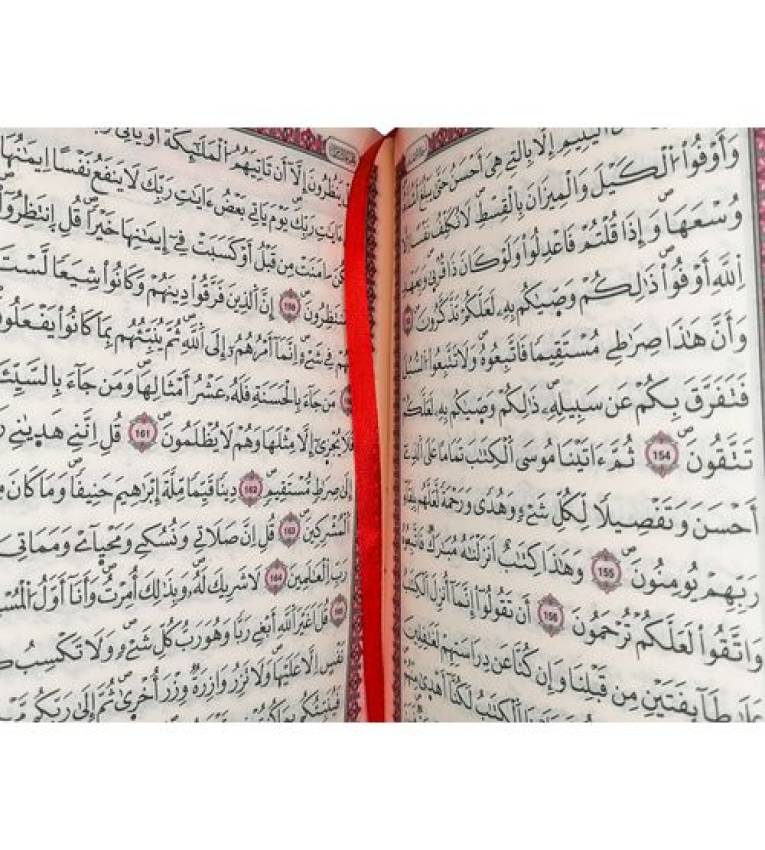 الْيَتِيمِ إِلَّا بِالتِي هِيَ أَحْسَنُ حَتَّىٰ يَبْلُغَ
وَأَوْفُوا۟ الْكَيْلَ وَالْمِيزَانَ بِالْقِسْطِ لَا نُكَلِّفُ نَفْسًا إِلَّا
وُسْعَهَا وَإِذَا قُلْتُمْ فَاعْدِلُوا۟ وَلَوْ كَانَ ذَا قُرْبَىٰ وَبِعَهْدِ
اِللَّهِ أَوْفُوا۟ ذَٰلِكُمْ وَصَّيٰكُم بِهِۦ لَعَلَّكُمْ تَذَّكَّرُونَ
وَأَنَّ هَٰذَا صِرَٰطِے مُسْتَقِيمًا فَاتَّبِعُوهُ وَلَا تَتَّبِعُوا۟ السُّبُلَ
فَتَفَرَّقَ بِكُمْ عَن سَبِيلِهِۦ ذَٰلِكُمْ وَصَّيٰكُم بِهِۦ لَعَلَّكُمْ
تَتَّقُونَ 154 ثُمَّ ءَاتَيْنَا مُوسَى اَلْكِتَٰبَ تَمَامًا عَلَى الَّذِے
أَحْسَنَ وَتَفْصِيلًا لِّكُلِّ شَےْءٍ وَهُدًى وَرَحْمَةً لَّعَلَّهُم بِلِقَآءِ
رَبِّهِمْ يُومِنُونَ 155 وَهَٰذَا كِتَٰبٌ أَنزَلْنَٰهُ مُبَٰرَكٌ فَاتَّبِعُوهُ
وَاتَّقُوا۟ لَعَلَّكُمْ تُرْحَمُونَ 156 أَن تَقُولُوٓا۟ إِنَّمَآ أُنزِلَ الْكِتَٰبُ
عَلَىٰ طَآئِفَتَيْنِ مِن قَبْلِنَا وَإِن كُنَّا عَن دِرَاسَتِهِمْ لَغَٰفِلِينَ
الْكِتَٰبُ لَكُنَّآ أَهْدَىٰ مِنْهُمْ
يَنظُرُونَ إِلَّآ أَن تَاتِيَهُمُ الْمَلَٰٓئِكَةُ أَوْ يَاتِيَ
ءَايَٰتِ رَبِّكَ يَوْمَ يَاتِے بَعْضُ ءَايَٰتِ رَبِّكَ لَا يَنفَعُ نَفْسًا إِيمَٰنُهَا
تَكُنَ ـ امَنَتْ مِن قَبْلُ أَوْ كَسَبَتْ فِےٓ إِيمَٰنِهَا خَيْرًا قُلِ اِنتَظِرُوٓا۟
مُنتَظِرُونَ إِنَّ الَّذِينَ فَرَّقُوا۟ دِينَهُمْ وَكَانُوا۟ شِيَعًا لَّسْتَ
مِنْهُمْ فِے شَےْءٍ اِنَّمَآ أَمْرُهُمُۥٓ إِلَى اللَّهِ ثُمَّ يُنَبِّئُهُم بِمَا كَانُوا۟ يَفْعَلُونَ
مَن جَآءَ بِالْحَسَنَةِ فَلَهُۥ عَشْرُ أَمْثَالِهَا وَمَن جَآءَ بِالسَّيِّئَةِ
فَلَا يُجْزَىٰٓ إِلَّا مِثْلَهَا وَهُمْ لَا يُظْلَمُونَ 161 قُلِ اِنَّنِے هَدَىٰنِے
إِلَىٰ صِرَٰطٍ مُّسْتَقِيمٍ 162 دِينًا قَيِّمًا مِّلَّةَ إِبْرَٰهِيمَ حَنِيفًا وَمَا كَانَ مِنَ
الْمُشْرِكِينَ 163 قُلِ اِنَّ صَلَاتِے وَنُسُكِے وَمَحْيَآےْ وَمَمَاتِيَ
رَبِّ الْعَٰلَمِينَ 164 لَا شَرِيكَ لَهُۥ وَبِذَٰلِكَ أُمِرْتُ وَأَنَآ أَوَّلُ
165 قُلَ اَغَيْرَ اَللَّهِ أَبْغِے رَبًّا وَهُوَ رَبُّ كُلِّ شَےْءٍ وَلَا تَكْسِبُ كُلُّ
نَفْسٍ اِلَّا عَلَيْهَا وَلَا تَزِرُ وَازِرَةٌ وِزْرَ أُخْرَىٰ ثُمَّ إِلَىٰ رَبِّكُم
فَيُنَبِّئُكُم بِمَا كُنتُمْ فِيهِ تَخْتَلِفُونَ